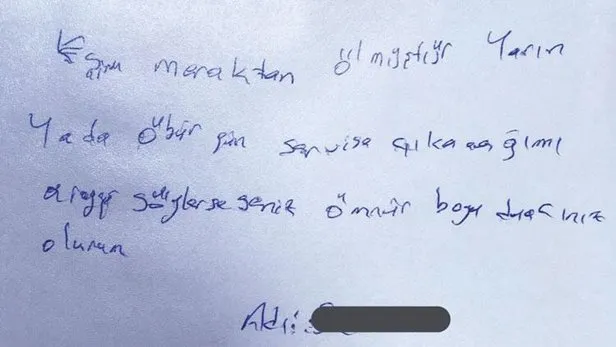 meraktan ölmüştür Yarın
Yada öbür gün servise çıkacağımı
söylerseniz ömür boyu duacınız
olurum